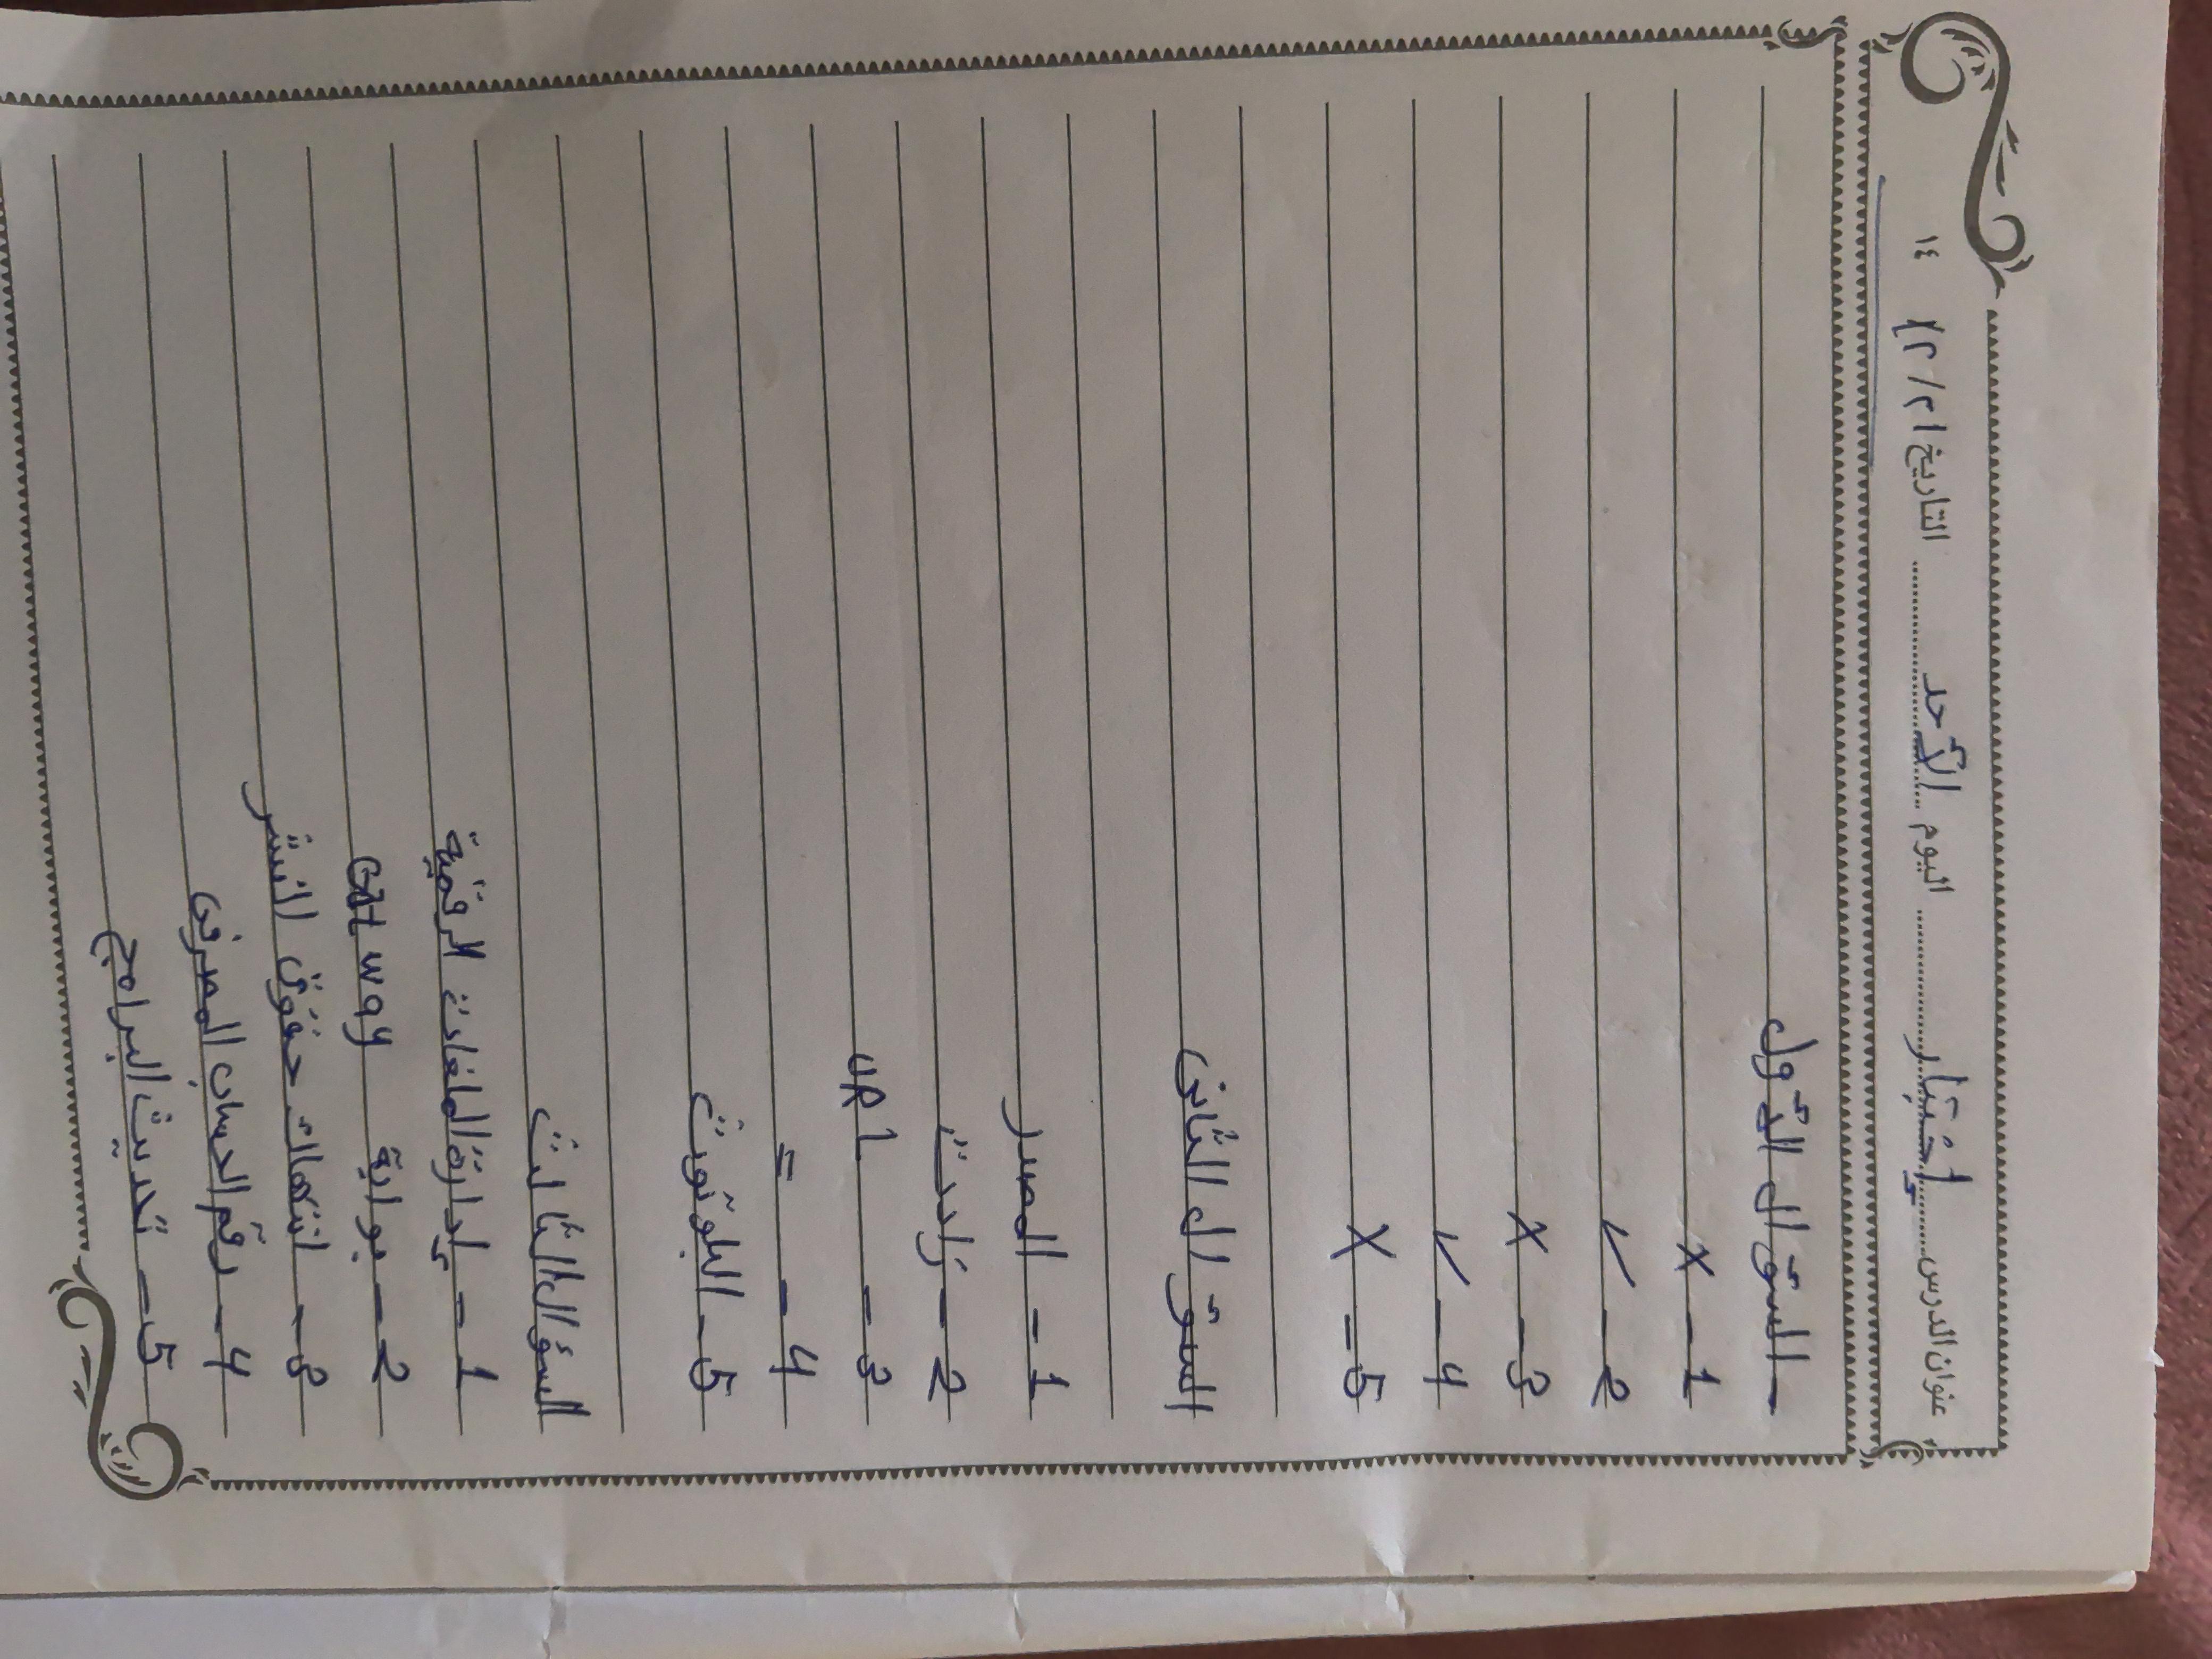 عنوان الدرس إختبار اليوم الأحد التاريخ ١٤
- السؤال الأول
1 - X
2 - ✓
3 - X
4 - ✓
5 - X
السؤال الثانى
1 - المصدر
2 - زادت
3 - URL
4 - =
5 - البلوتوث
السؤال الثالث
1 - إدارة الملفات الرقمية
2 - بوابة
3 - انتهاك حقوق النشر
4 - رقم الحساب المصرفى
5 - تحديث البرامج